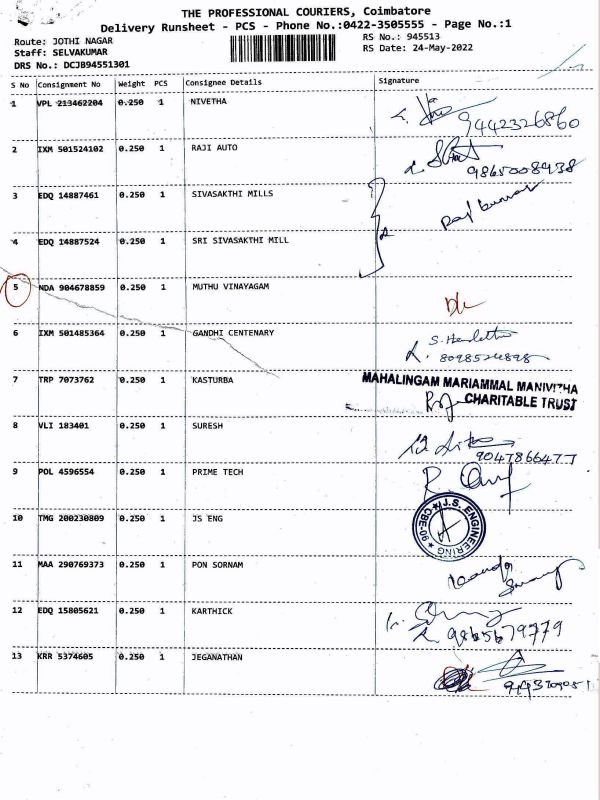 THE PROFESSIONAL COURIERS, Coimbatore
Delivery Runsheet - PCS - Phone No.:0422-3505555 - Page No.:1
Route: JOTHI NAGAR
Staff: SELVAKUMAR
DRS No.: DCJB94551301
RS No.: 945513
RS Date: 24-May-2022
S No Consignment No Weight PCS Consignee Details Signature
1 VPL 213462204 0.250 1 NIVETHA
9442326860
2 IXM 501524102 0.250 1 RAJI AUTO
9865008938
3 EDQ 14887461 0.250 1 SIVASAKTHI MILLS
Raj kumar
4 EDQ 14887524 0.250 1 SRI SIVASAKTHI MILL
5 NDA 904678859 0.250 1 MUTHU VINAYAGAM
D/c
6 IXM 501485364 0.250 1 GANDHI CENTENARY
7 TRP 7073762 0.250 1 KASTURBA
MAHALINGAM MARIAMMAL MANIVITHA
CHARITABLE TRUST
8 VLI 183401 0.250 1 SURESH
9047866477
9 POL 4596554 0.250 1 PRIME TECH
10 TMG 200230809 0.250 1 JS ENG
J.S. ENGINEERING CBE-90
11 MAA 290769373 0.250 1 PON SORNAM
12 EDQ 15805621 0.250 1 KARTHICK
9865679779
13 KRR 5374605 0.250 1 JEGANATHAN